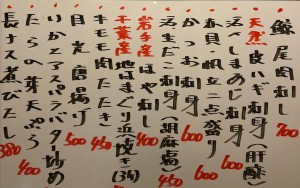 鯨尾肉刺し 700
天然皮ハギ刺身(肝酢)
活しまあじ刺身 600
赤貝帆立二点盛り 600
かつお刺身 600
活まだこ刺身(胡麻醤) 450
岩手産ほや刺し 400
千葉産地はまぐり浜焼き(3ケ) 450
牛モモ肉たたき 500
目光唐揚げ
りかとアスパラバター炒め
たらの芽天ぷら 400
長ナス煮びたし 380